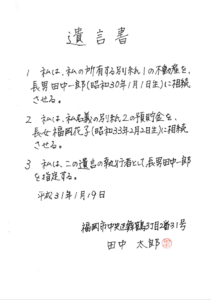 遺言書
1 私は、私の所有する別紙1の不動産を、
長男田中一郎(昭和30年1月1日生)に相続
させる。
2 私は、私名義の別紙2の預貯金を、
長女福岡花子(昭和33年2月2日生)に相続
させる。
3 私は、この遺言の執行者として、長男田中一郎
を指定する。
平成31年1月19日
福岡市中央区舞鶴3丁目2番31号
田中 太郎